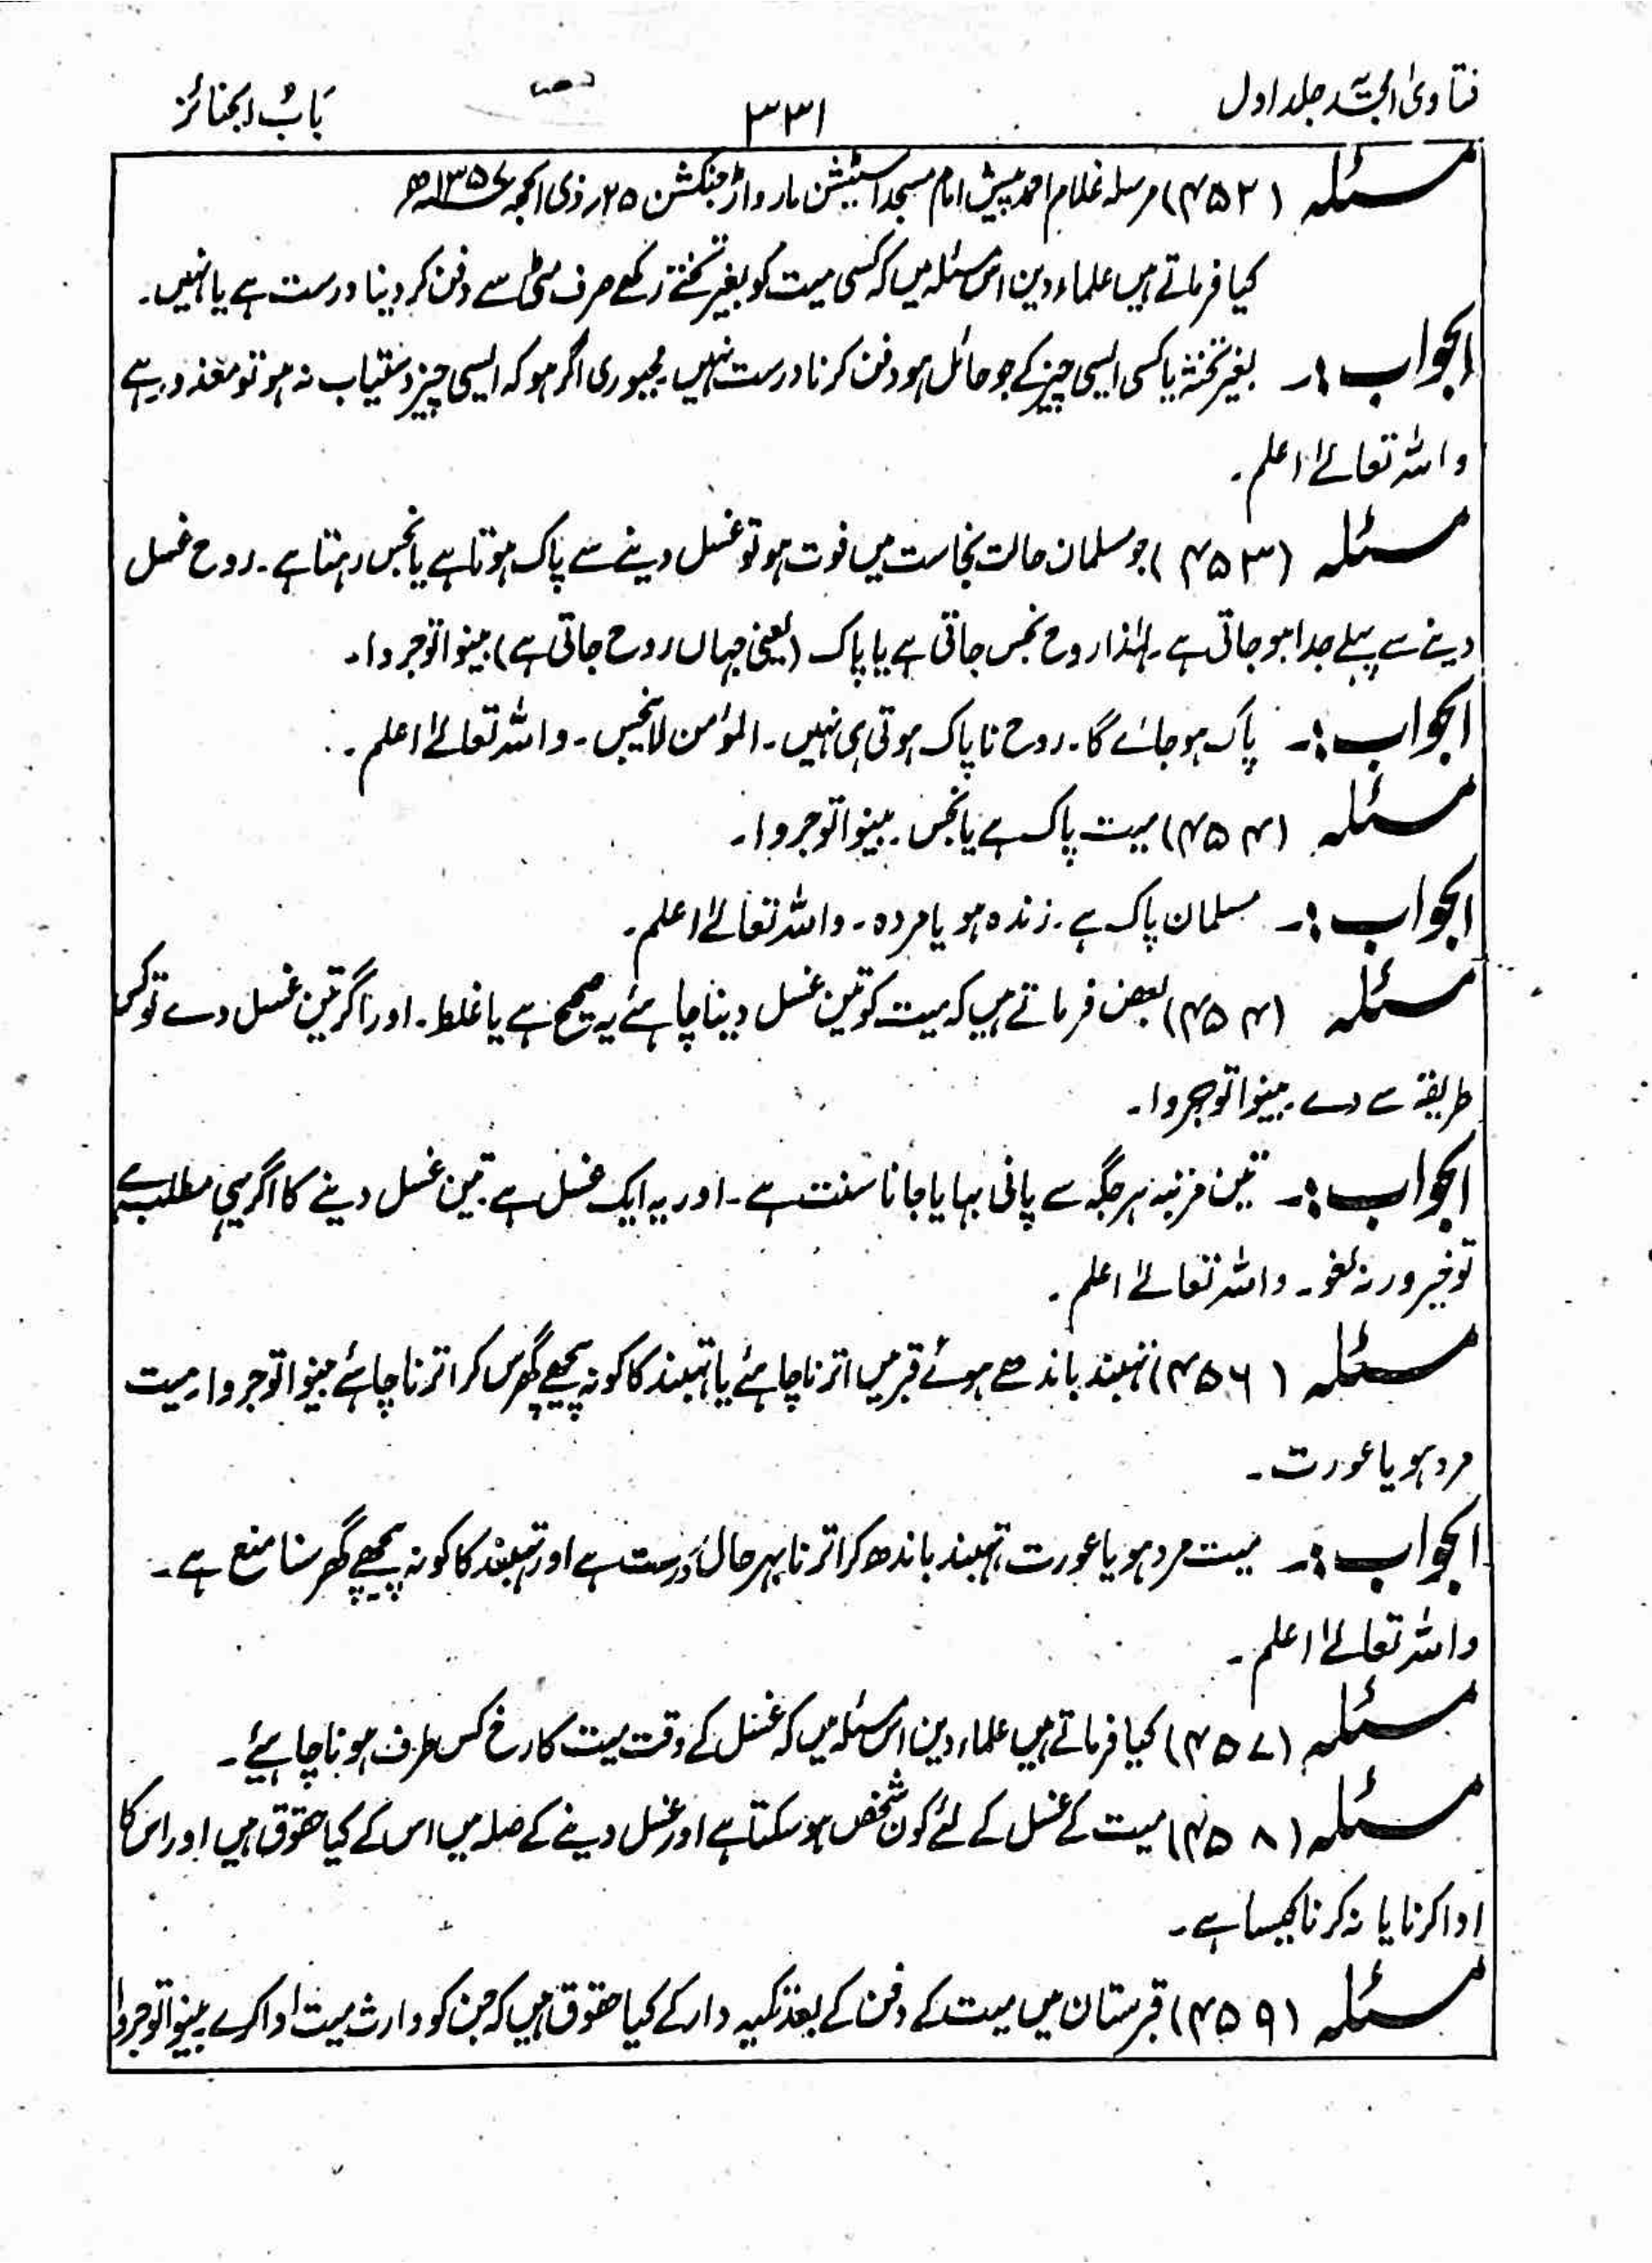 فتاویٰ اجملیہ جلد اول
۳۳۱
باب الجنائز
مسئلہ (۴۵۲) مرسلہ غلام احمد پیش امام مسجد اسٹیشن مارواڑ جنکشن ۲۵؍ذی الحجہ ۱۳۵۶ھ
کیا فرماتے ہیں علماء دین اس مسئلہ میں کہ کسی میت کو بغیر تختے رکھے صرف مٹی سے دفن کر دینا درست ہے یا نہیں۔
الجواب :۔ بغیر تختہ یا کسی ایسی چیز کے جو حائل ہو دفن کرنا درست نہیں۔ مجبوری اگر ہو کہ ایسی چیز دستیاب نہ ہو تو معذور ہے
واللہ تعالےٰ اعلم۔
مسئلہ (۴۵۳) جو مسلمان حالت نجاست میں فوت ہو تو غسل دینے سے پاک ہوتا ہے یا نجس رہتا ہے۔ روح غسل
دینے سے پہلے جدا ہو جاتی ہے۔ لہٰذا روح نجس جاتی ہے یا پاک (یعنی جہاں روح جاتی ہے) بینوا توجروا۔
الجواب :۔ پاک ہو جائے گا۔ روح ناپاک ہوتی ہی نہیں۔ المؤمن لا ینجس۔ واللہ تعالےٰ اعلم۔
مسئلہ (۴۵۴) میت پاک ہے یا نجس۔ بینوا توجروا۔
الجواب :۔ مسلمان پاک ہے۔ زندہ ہو یا مردہ۔ واللہ تعالےٰ اعلم۔
مسئلہ (۴۵۴) بعض فرماتے ہیں کہ میت کو تین غسل دینا چاہئے یہ صحیح ہے یا غلط۔ اور اگر تین غسل دے تو کس
طریقہ سے دے۔ بینوا توجروا۔
الجواب :۔ تین مرتبہ ہر جگہ سے پانی بہایا جانا سنت ہے۔ اور یہ ایک غسل ہے۔ تین غسل دینے کا اگر یہی مطلب ہے
تو خیر ورنہ لغو۔ واللہ تعالےٰ اعلم۔
مسئلہ (۴۵۶) تہبند باندھے ہوئے قبر میں اترنا چاہئے یا تہبند کا کونہ پیچھے گھرس کر اترنا چاہئے بینوا توجروا۔ میت
مرد ہو یا عورت۔
الجواب :۔ میت مرد ہو یا عورت، تہبند باندھ کر اترنا بہرحال درست ہے اور تہبند کا کونہ پیچھے گھرسنا منع ہے۔
واللہ تعالےٰ اعلم۔
مسئلہ (۴۵۷) کیا فرماتے ہیں علماء دین اس مسئلہ میں کہ غسل کے وقت میت کا رخ کس طرف ہونا چاہئے۔
مسئلہ (۴۵۸) میت کے غسل کے لئے کون شخص ہو سکتا ہے اور غسل دینے کے صلہ میں اس کے کیا حقوق ہیں اور اس کا
ادا کرنا یا نہ کرنا کیسا ہے۔
مسئلہ (۴۵۹) قبرستان میں میت کے دفن کے بعد تکیہ دار کے کیا حقوق ہیں کہ جن کو وارث میت ادا کرے بینوا توجروا